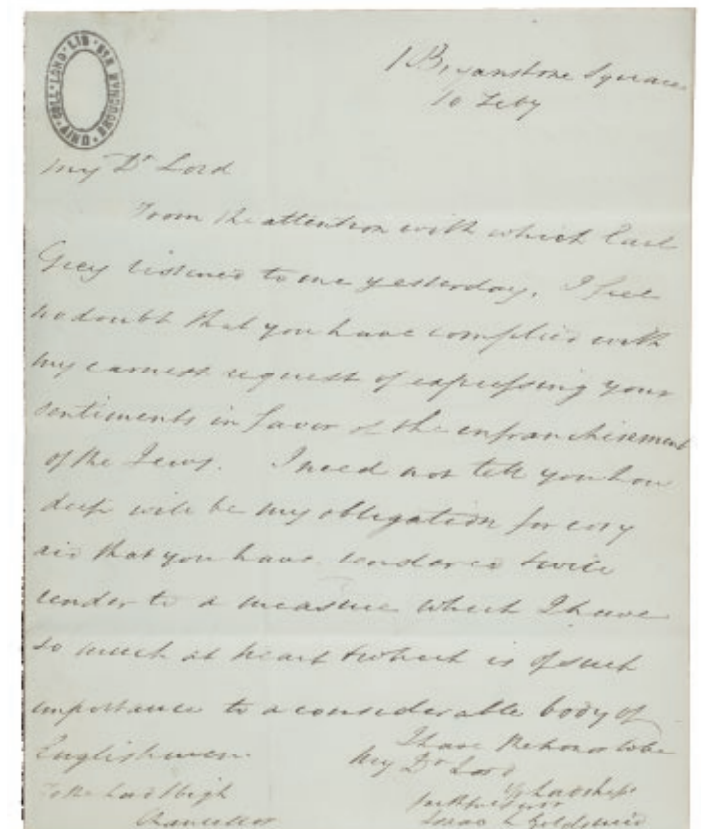 UNIV. COLL. LOND. LIB. STR. BROUGHAM
1 Bryanstone Square
10 Feby
My Dr Lord
From the attention with which Earl
Grey listened to me yesterday, I feel
no doubt that you have complied with
my earnest request of expressing your
sentiments in favor of the enfranchisement
of the Jews. I need not tell you how
deep will be my obligation for every
aid that you have rendered & will
render to a measure which I have
so much at heart & which is of such
importance to a considerable body of
Englishmen.
I have the honor to be
My Dr Lord
Yr Lordships
faithful
Isaac L Goldsmid
To the Lord High
Chancellor